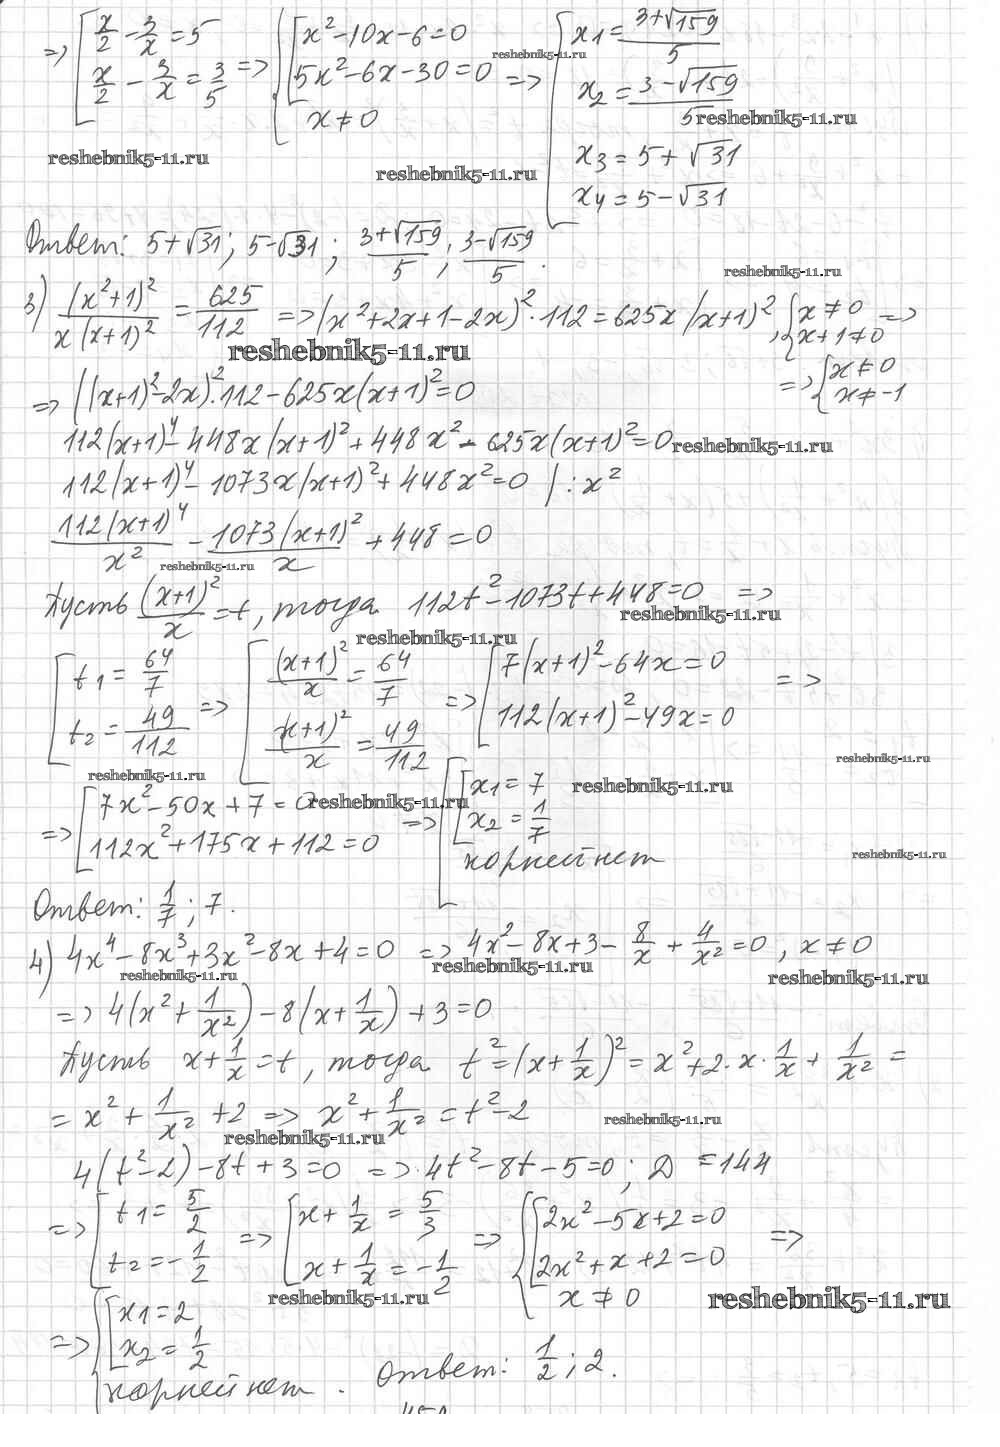 => [ x/2 - 3/x = 5
x/2 - 3/x = 3/5 => { [ x² - 10x - 6 = 0
5x² - 6x - 30 = 0
x ≠ 0 => [ x₁ = (3+√159)/5
x₂ = (3-√159)/5
x₃ = 5 + √31
x₄ = 5 - √31
reshebnik5-11.ru
reshebnik5-11.ru
reshebnik5-11.ru
reshebnik5-11.ru
Ответ: 5+√31; 5-√31; (3+√159)/5; (3-√159)/5.
reshebnik5-11.ru
3) (x²+1)²/(x(x+1)²) = 625/112 => (x²+2x+1-2x)²·112 = 625x(x+1)², { x ≠ 0
x+1 ≠ 0 =>
reshebnik5-11.ru
=> { x ≠ 0
x ≠ -1
=> ((x+1)²-2x)²·112 - 625x(x+1)² = 0
112(x+1)⁴ - 448x(x+1)² + 448x² - 625x(x+1)² = 0
reshebnik5-11.ru
112(x+1)⁴ - 1073x(x+1)² + 448x² = 0 | :x²
112(x+1)⁴/x² - 1073(x+1)²/x + 448 = 0
reshebnik5-11.ru
Пусть (x+1)²/x = t, тогда 112t² - 1073t + 448 = 0 =>
reshebnik5-11.ru
reshebnik5-11.ru
[ t₁ = 64/7
t₂ = 49/112 => [ (x+1)²/x = 64/7
(x+1)²/x = 49/112 => [ 7(x+1)² - 64x = 0
112(x+1)² - 49x = 0 =>
reshebnik5-11.ru
reshebnik5-11.ru
=> [ 7x² - 50x + 7 = 0
112x² + 175x + 112 = 0 => [ [ x₁ = 7
x₂ = 1/7
корней нет
reshebnik5-11.ru
reshebnik5-11.ru
reshebnik5-11.ru
Ответ: 1/7; 7.
4) 4x⁴ - 8x³ + 3x² - 8x + 4 = 0 => 4x² - 8x + 3 - 8/x + 4/x² = 0, x ≠ 0
reshebnik5-11.ru
reshebnik5-11.ru
reshebnik5-11.ru
=> 4(x² + 1/x²) - 8(x + 1/x) + 3 = 0
Пусть x + 1/x = t, тогда t² = (x + 1/x)² = x² + 2·x·1/x + 1/x² =
= x² + 1/x² + 2 => x² + 1/x² = t² - 2
reshebnik5-11.ru
reshebnik5-11.ru
4(t²-2) - 8t + 3 = 0 => 4t² - 8t - 5 = 0; D = 144
=> [ t₁ = 5/2
t₂ = -1/2 => [ x + 1/x = 5/3
x + 1/x = -1/2 => { [ 2x² - 5x + 2 = 0
2x² + x + 2 = 0
x ≠ 0 =>
reshebnik5-11.ru
reshebnik5-11.ru
=> { [ x₁ = 2
x₂ = 1/2
корней нет. Ответ: 1/2; 2.